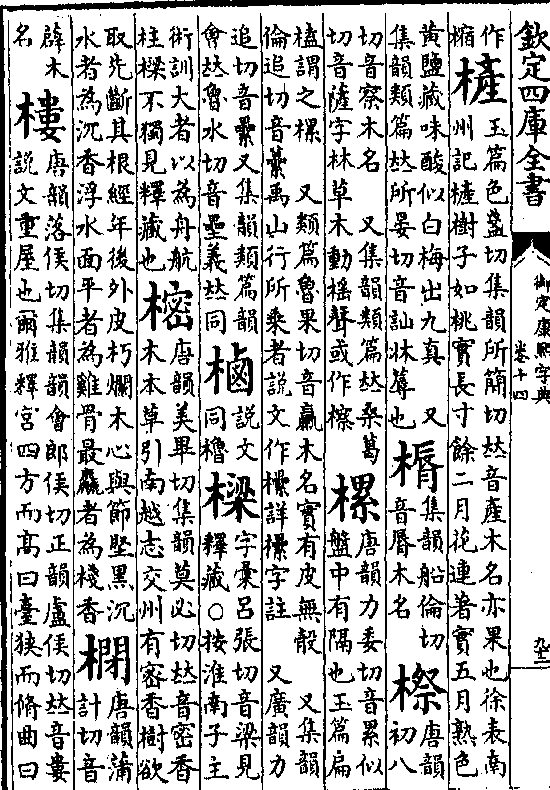 欽定四庫全書
御定康熙字典
卷十四
作
㯆
玉篇色盞切集韻所簡切𠀤音產木名亦果也徐表南
州記㯆樹子如桃實長寸餘二月花連著實五月熟色
黄鹽藏味酸似白梅出九真 又
集韻類篇𠀤所晏切音訕牀簀也
集韻船倫切
音脣木名
唐韻
初八
切音察木名 又集韻類篇𠀤桑葛
切音薩字林草木動揺聲或作檫
樏
唐韻力委切音累似
盤中有隔也玉篇扁
榼謂之樏 又類篇魯果切音蠃木名實有皮無殼 又集韻
倫追切音纍禹山行所乘者說文作欙詳欙字註 又廣韻力
追切音纍又集韻類篇韻
會𠀤魯水切音壘義𠀤同
樐
說文
同櫓
樑
字彙呂張切音梁見
釋藏○按淮南子主
術訓大者以為舟航
柱樑不獨見釋藏也
樒
唐韻美畢切集韻莫必切𠀤音密香
木本草引南越志交州有密香樹欲
取先斷其根經年後外皮朽爛木心與節堅黑沉
水者為沉香浮水面平者為雞骨最麤者為棧香
唐韻蒲
計切音
薜木
名
樓
唐韻落侯切集韻韻會郎侯切正韻盧侯切𠀤音婁
說文重屋也爾雅釋宮四方而高曰臺狹而脩曲曰